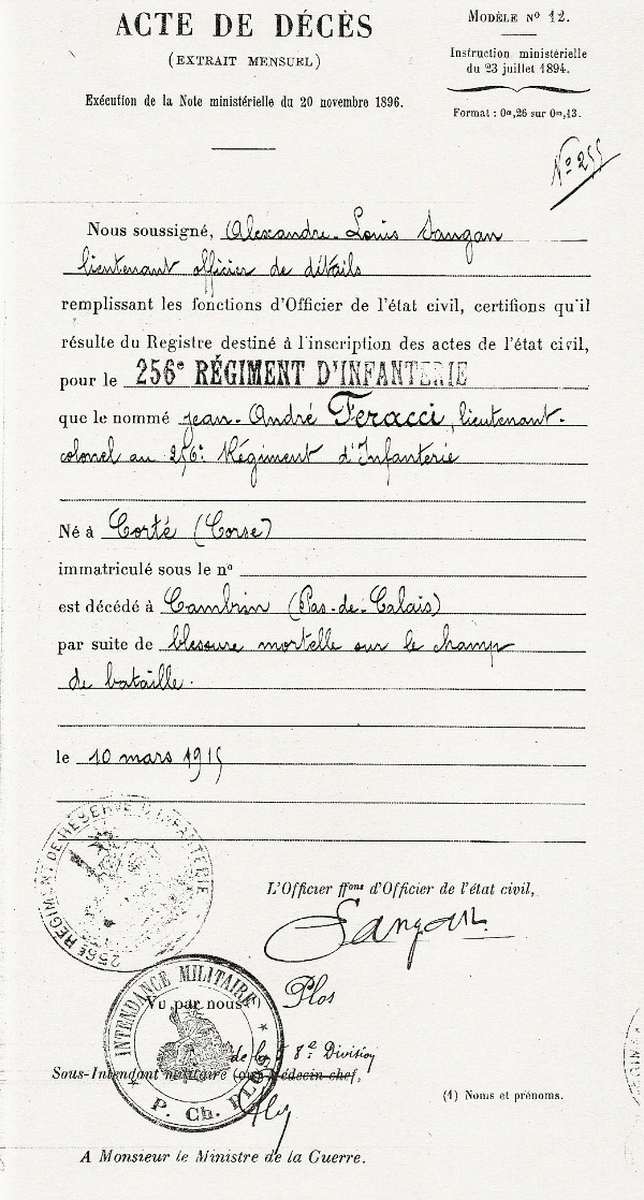 ACTE DE DÉCÈS
(EXTRAIT MENSUEL)
Exécution de la Note ministérielle du 20 novembre 1896.
MODÈLE Nº 12.
Instruction ministérielle
du 23 juillet 1894.
Format : 0m,26 sur 0m,13.
Nº 255
Nous soussigné, Alexandre-Louis Sangan
lieutenant officier de détails
remplissant les fonctions d'Officier de l'état civil, certifions qu'il
résulte du Registre destiné à l'inscription des actes de l'état civil,
pour le 256e RÉGIMENT D'INFANTERIE
que le nommé Jean-André Feracci, lieutenant-
colonel au 256e Régiment d'Infanterie
Né à Corté (Corse)
immatriculé sous le nº
est décédé à Cambrin (Pas-de-Calais)
par suite de blessure mortelle sur le champ
de bataille.
le 10 mars 1915
256e RÉGIMENT DE RÉSERVE D'INFANTERIE
L'Officier ffons d'Officier de l'état civil,
Sangan
INTENDANCE MILITAIRE
Vu par nous Plos
de la 58e Division
Sous-Intendant militaire (ou Médecin chef,
P. Ch. PLOS
(1) Noms et prénoms.
A Monsieur le Ministre de la Guerre.